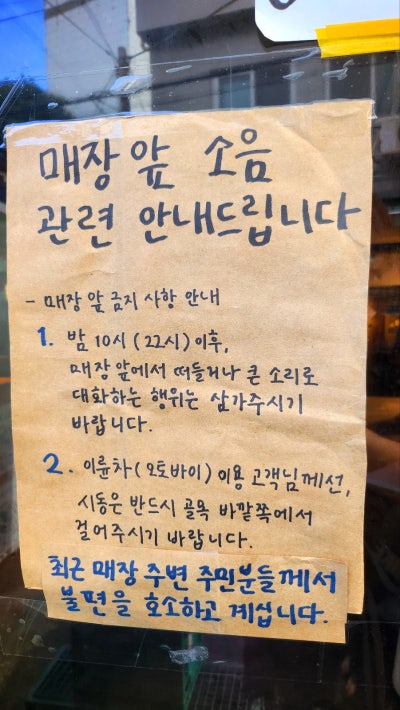 매장 앞 소음
관련 안내드립니다
- 매장 앞 금지 사항 안내
1. 밤 10시 (22시) 이후,
매장 앞에서 떠들거나 큰 소리로
대화하는 행위는 삼가주시기
바랍니다.
2. 이륜차(오토바이) 이용 고객님께선,
시동은 반드시 골목 바깥쪽에서
걸어주시기 바랍니다.
최근 매장 주변 주민분들께서
불편을 호소하고 계십니다.